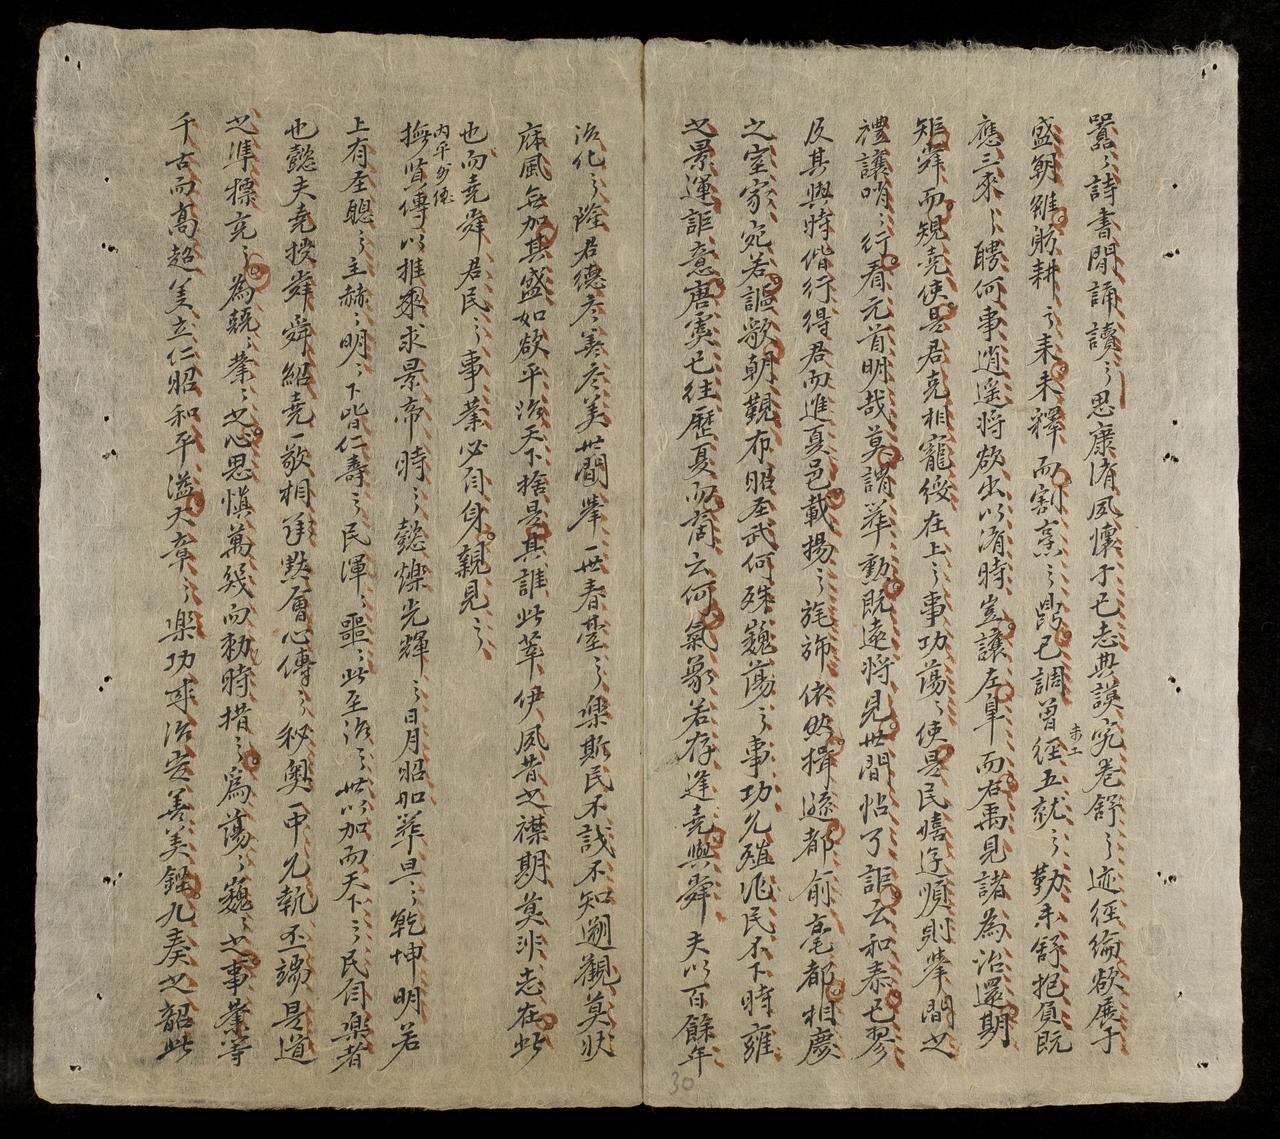 囂〻詩書閒誦讀〻思康濟夙懷于已志典謨究卷舒〻迹經綸欲展于
盛朝雖舫耕〻耒未釋而割烹〻鼎已調曾經五就〻勤未舒抱負既
應三來〻聘何事逍遥將欲出以濟時豈讓左皐而右禹見諸為治還期
矩舜而規堯使是君克相寵綏在上〻事功蕩〻使是民嬉逰順則舉間之
禮讓哨〻行看元首明哉莫謂華勳既遠將見世間怗了詎云和恭已翏
及其與時偕行得君而進夏邑載揚〻旄旆依然揖遜都俞亳都相慶
之室家宛若謳歌朝覲布昭至武何殊巍蕩〻事功允殖兆民不下時雍
之景運詎意唐虞已往歷夏而商云何氣象若存逢堯與舜夫以百餘年
治化〻隆君德尽善尽美世間舉一世春臺〻樂斯民不識不知遡觀莫狀
庥風無加其盛如欲平治天下捨是其誰此莘伊夙昔之襟期莫非志在此
也而堯舜君民〻事業必自身親見〻
内平外
撫賢傳以推求景帝時〻懿爍光輝〻日月昭如華旦〻乾坤明若
上有至聰〻主赫〻明〻下皆仁壽〻民渾〻噩〻此至治〻世以加而天下〻民自樂者
也懿夫堯授舜舜紹堯一敬相傳默會心傳〻秘奥一中允執丕端是道
之準標充〻為兢〻業〻之心思慎萬幾而勑時措〻爲蕩〻巍〻之事業等
千古而高超美立仁昭和平溢大章〻樂功成治定善美鏗九奏之韶此